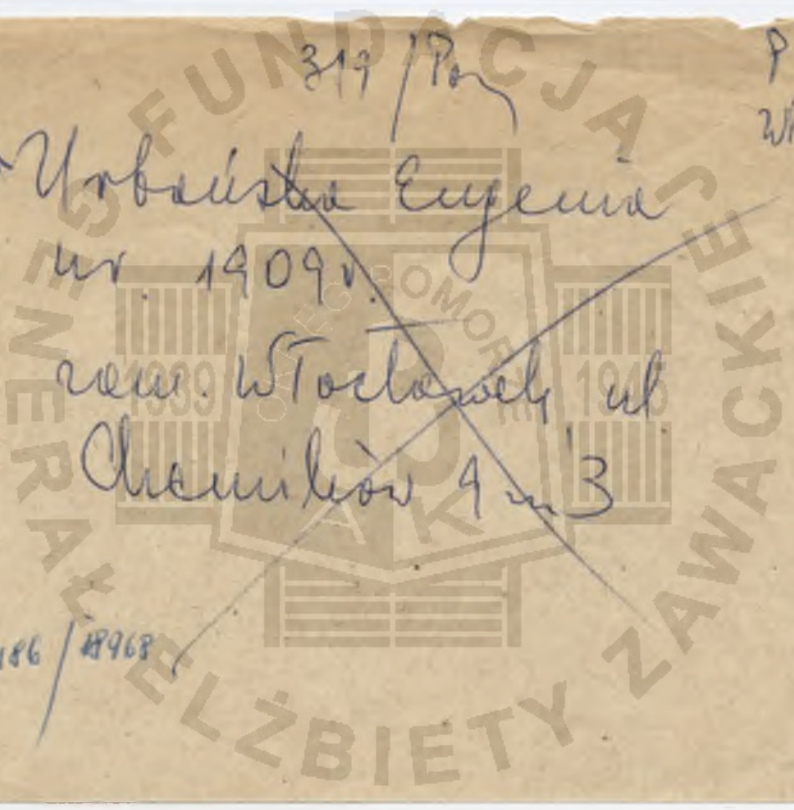 319/Pom
P
Urbańska Eugenia
ur. 1909r.
zam. Włocławek, ul.
Chemików 4 m 3
186/18968
FUNDACJA GENERAŁ ELŻBIETY ZAWACKIEJ
1939 1945
AK